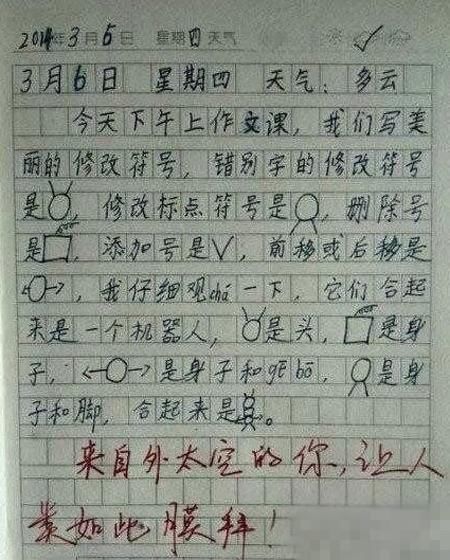 2014年3月6日 星期四 天气
3月6日 星期四 天气：多云
今天下午上作文课，我们写美
丽的修改符号，错别字的修改符号
是 ，修改标点符号是 ，删除号
是 ，添加号是√，前移或后移是
←○→，我仔细观chá一下，它们合起
来是一个机器人， 是头， 是身
子，←○→是身子和gē bō， 是身
子和脚，合起来是 。
来自外太空的你，让人
类如此膜拜！